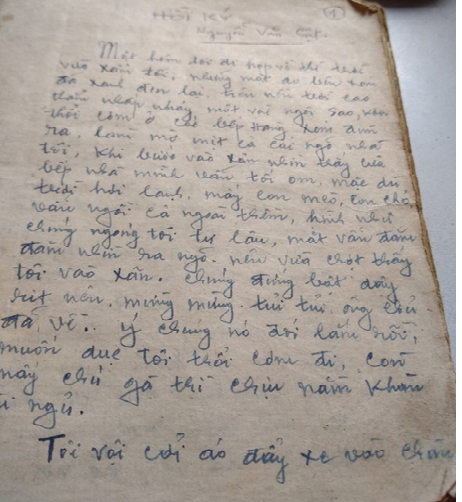 HỒI KÝ
1
Nguyễn Văn
Một hôm tôi đi họp về thì trời
vừa xẩm tối, nhưng mặt ao bên xóm
đã xanh đen lại, trên nền trời cao
thăm nhấp nháy một vài ngôi sao,
thổi cơm ở bếp hàng xóm
ra, làm mờ mịt cả cái ngõ nhà
tôi, khi bước vào sân nhìn thấy cửa
bếp nhà mình vẫn tối om, mặc dù
trời hơi lạnh, mấy con mèo, con chó
vẫn ngồi cả ngoài thềm, hình như
chúng ngóng tôi từ lâu, mắt vẫn đăm
đăm nhìn ra ngõ. nên vừa chợt thấy
tôi vào sân. chúng đứng bật dậy
rít nên. mừng mừng. tủi tủi. ông chủ
đã về.. ý chúng nó đói lắm rồi,
muốn dục tôi thổi cơm đi, còn
mấy chú gà thì chịu nằm
ngủ.
Tôi vội cởi áo đẩy xe vào